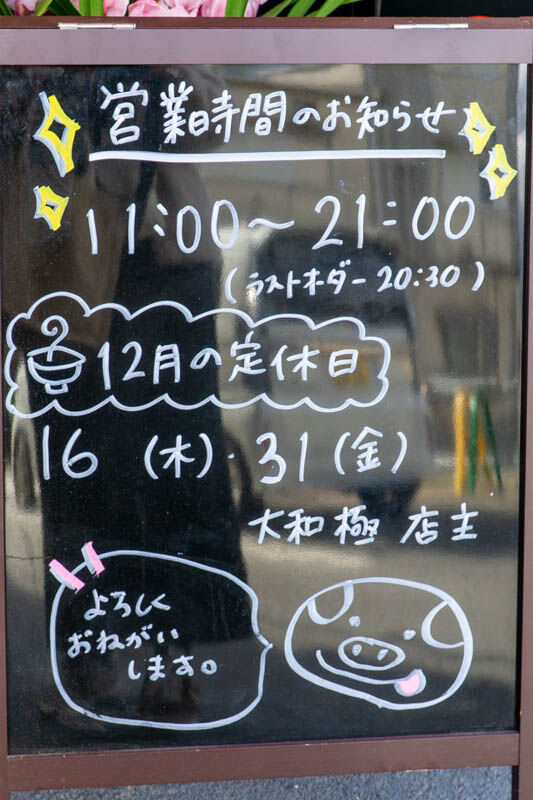 営業時間のお知らせ
11:00～21:00
(ラストオーダー20:30)
12月の定休日
16 (木)・31(金)
大和極 店主
よろしく
おねがい
します。